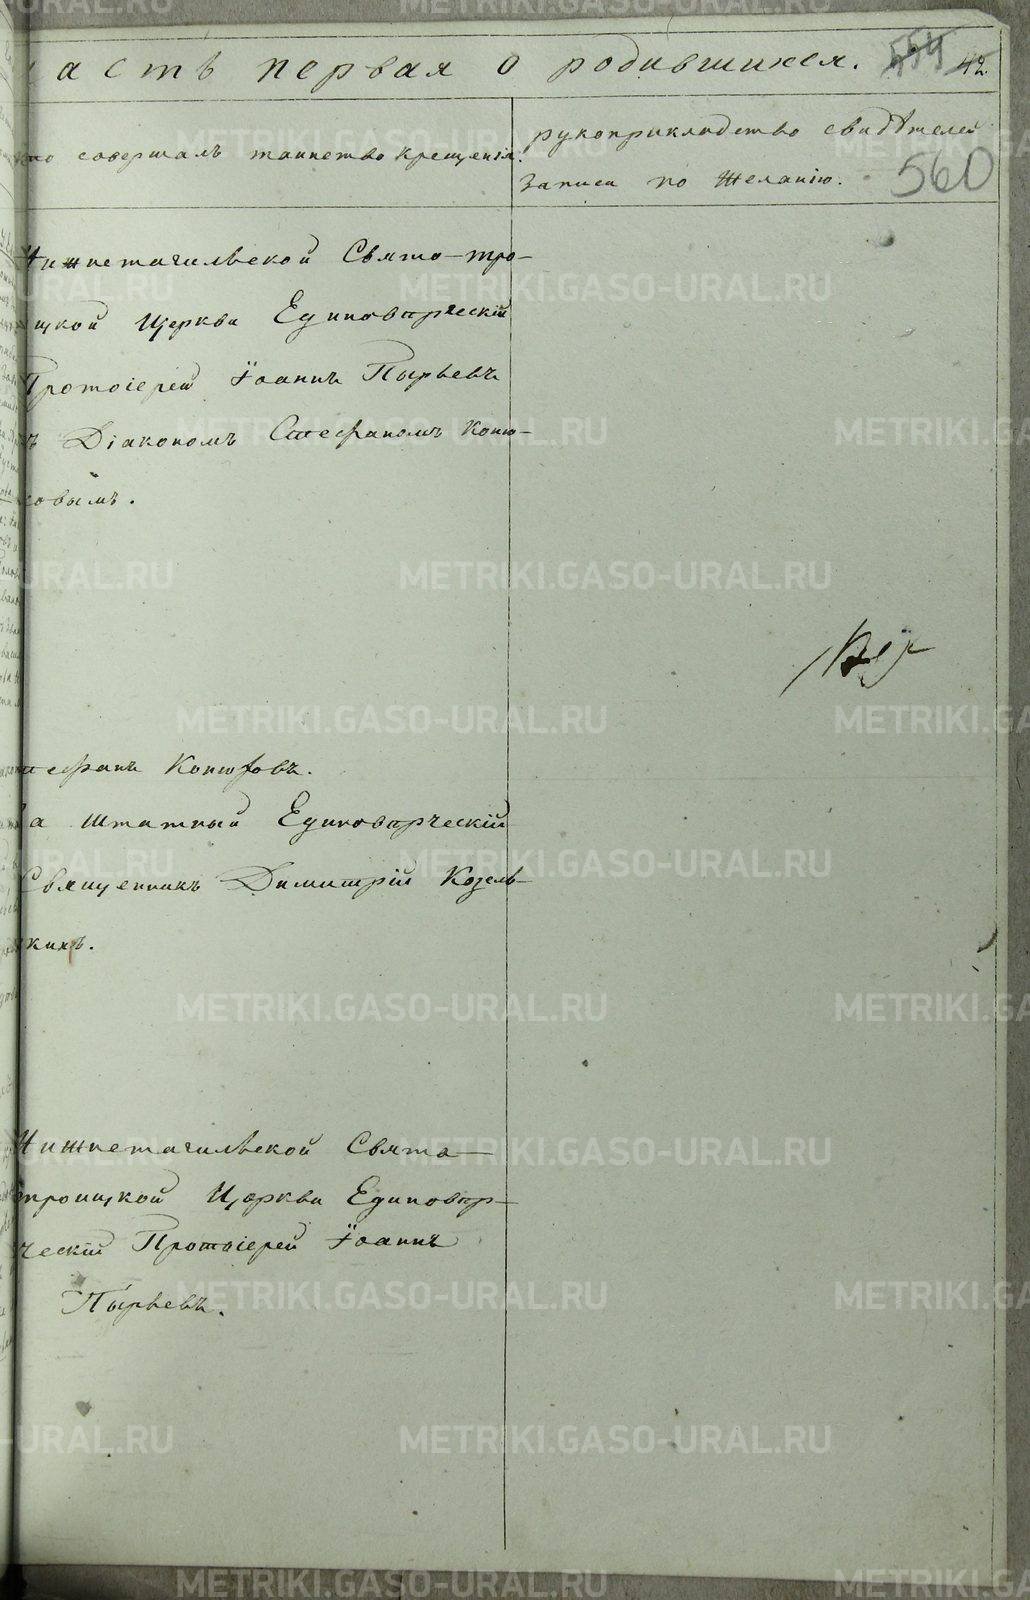 асть первая о родившихся. 554 42
кто совершалъ таинство крещенія.
рукоприкладство свидѣтелей
записи по желанію. 560
Нижнетагильской Свято-тро-
ицкой Церкви Единовѣрческій
Протоіерей Іоаннъ Пырьевъ
съ Діакономъ Стефаномъ Коню-
ховымъ.
Стефанъ Конюховъ.
За штатный Единовѣрческій
Священникъ Димитрій Козель-
скихъ.
Нижнетагильской Свято-
троицкой Церкви Единовѣр-
ческій Протоіерей Іоаннъ
Пырьевъ.
METRIKI.GASO-URAL.RU